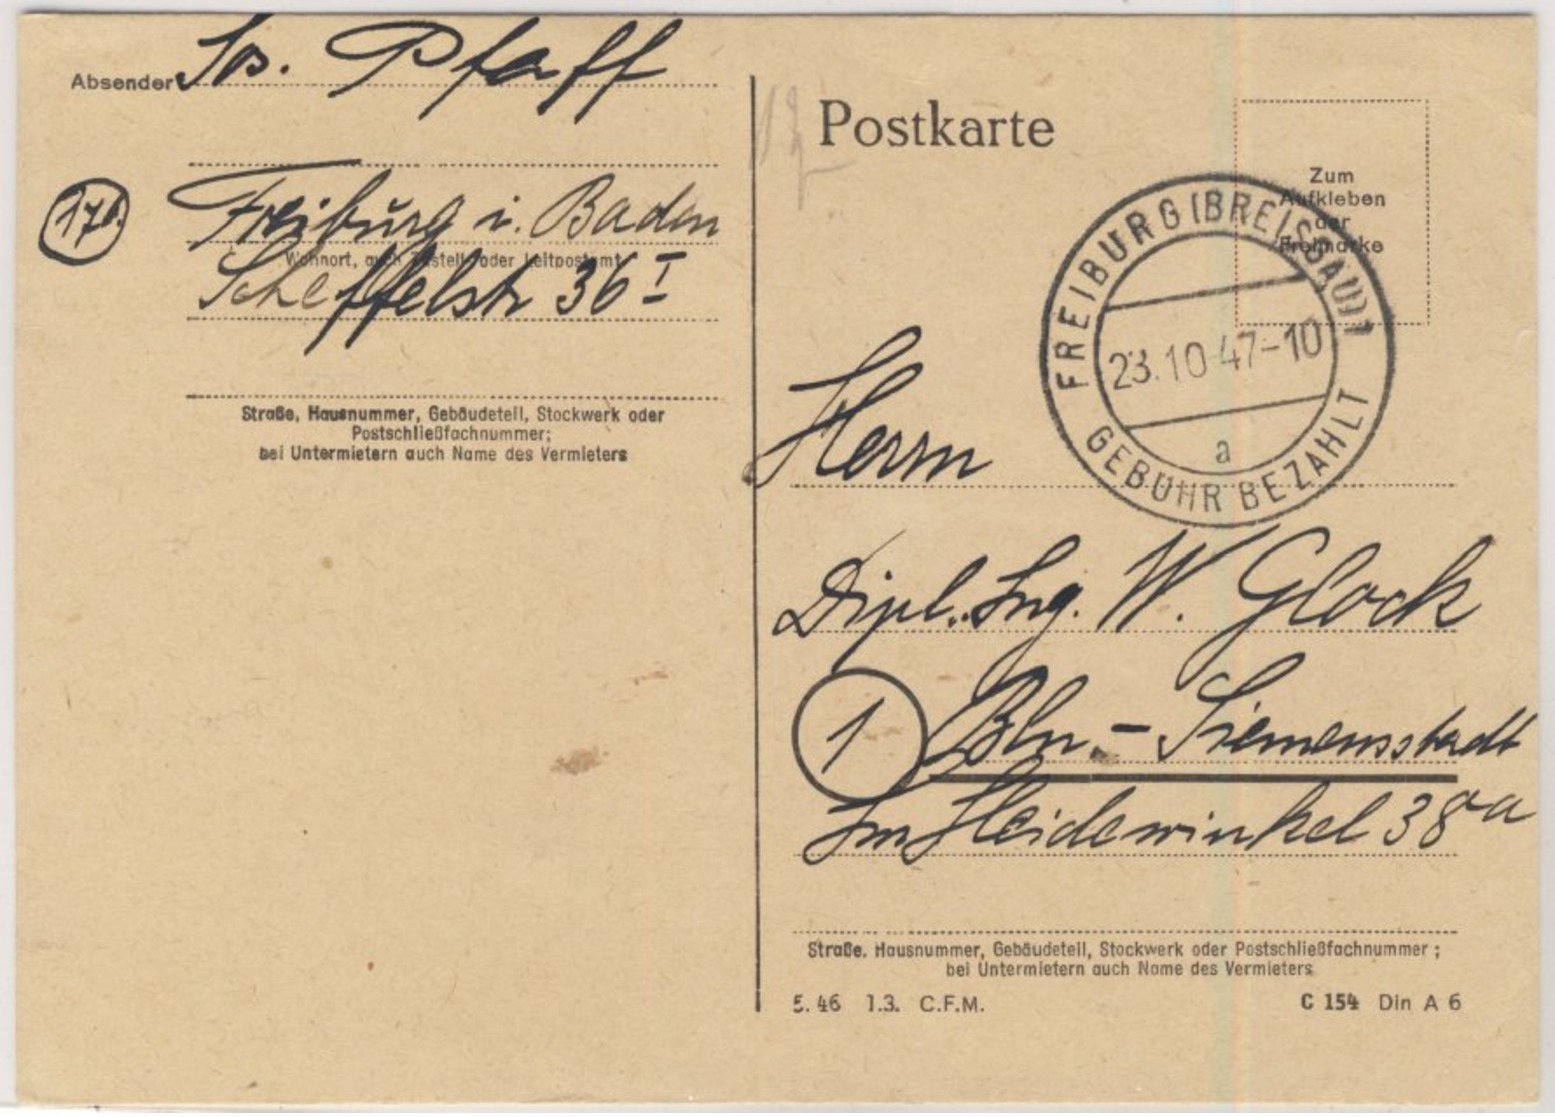 Absender Jos. Pfaff
17b.
Freiburg i. Baden
Wohnort, auch Zustell- oder Leitpostamt
Scheffelstr 36 I
Straße, Hausnummer, Gebäudeteil, Stockwerk oder
Postschließfachnummer;
bei Untermietern auch Name des Vermieters
Postkarte
Zum
Aufkleben
der
Freimarke
FREIBURG (BREISGAU) 1
23.10.47-10
a
GEBÜHR BEZAHLT
Herrn
Dipl.. Ing. W. Glock
1 Bln. - Siemensstadt
Im Heidewinkel 38 a
Straße, Hausnummer, Gebäudeteil, Stockwerk oder Postschließfachnummer;
bei Untermietern auch Name des Vermieters
5. 46 1.3. C.F.M.
C 154 Din A 6